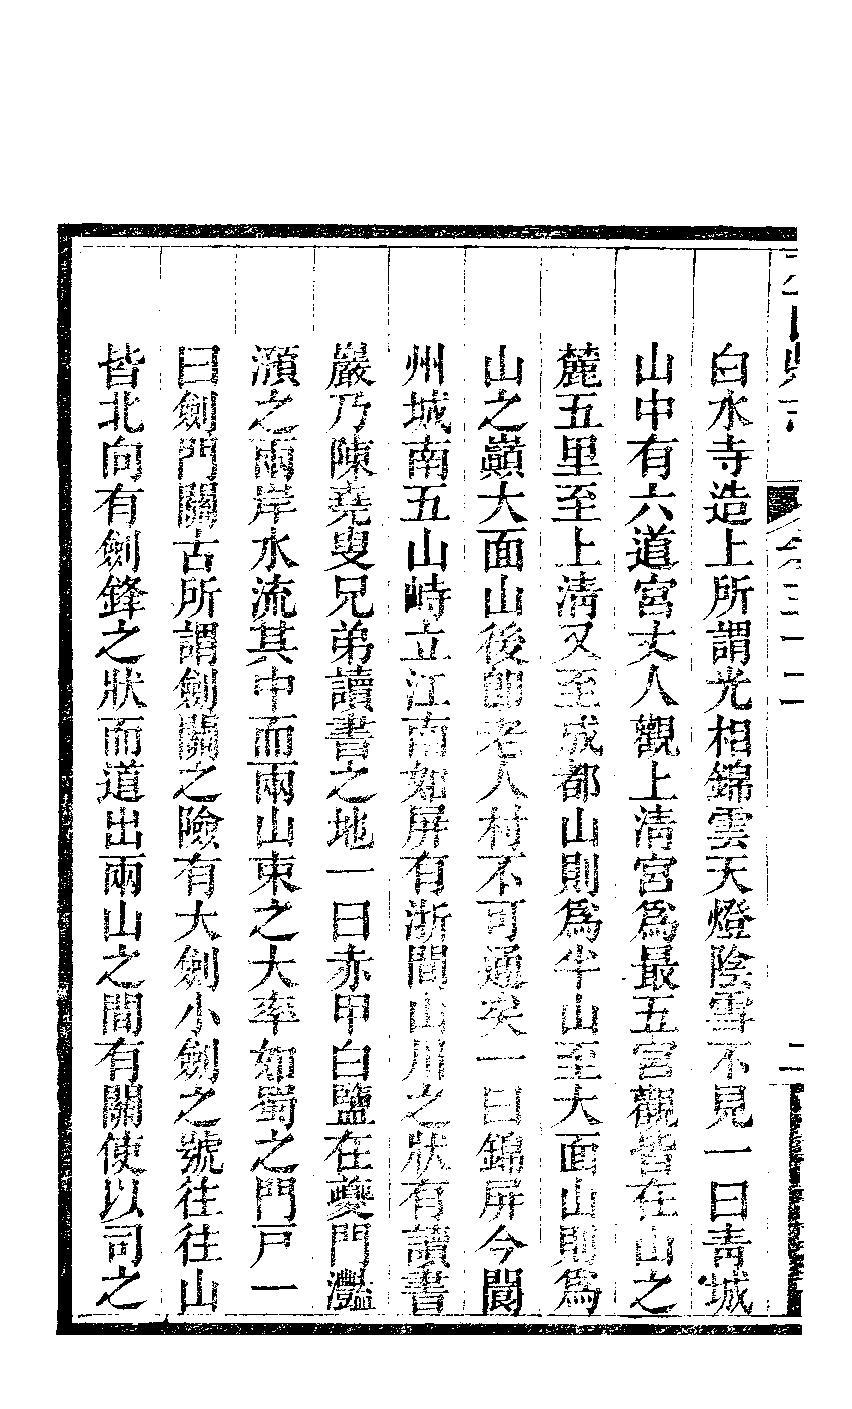 白水寺造上所謂光相錦雲天燈陰雪不見一曰靑城
山中有六道宮丈人觀上淸宮爲最五宮觀皆在山之
麓五里至上淸又至成都山則爲半山至大面山則爲
山之巓大面山後卽老人村不可通矣一曰錦屏今閬
州城南五山峙立江南如屏有浙間山川之狀有讀書
巖乃陳堯叟兄弟讀書之地一曰赤甲白鹽在夔門灩
澦之兩岸水流其中而兩山束之大率如蜀之門戸一
曰劍門關古所謂劍關之險有大劍小劍之號往往山
皆北向有劍鋒之狀而道出兩山之間有關使以司之